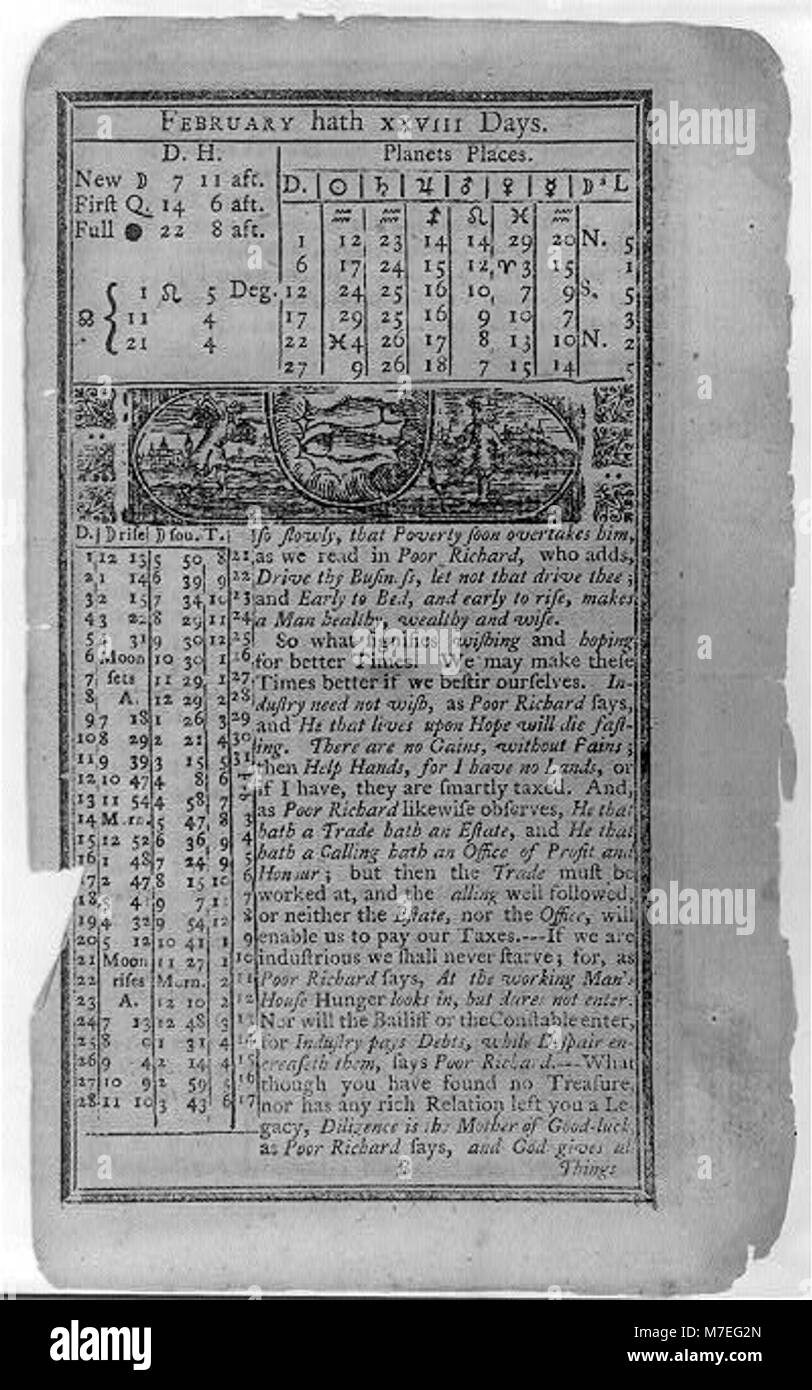 FEBRUARY hath XXVIII Days.
D. H.
New ☽ 7 11 aft.
Firſt Q. 14 6 aft.
Full ● 22 8 aft.
☊ { 1 ♌ 5 Deg.
11 4
21 4
Planets Places.
D. ☉ ♄ ♃ ♂ ♀ ☿ ☽ˢ L
♒ ♒ ♐ ♌ ♓ ♒
1 12 23 14 14 29 20 N. 5
6 17 24 15 12 ♈ 3 15 1
12 24 25 16 10 7 9 S. 5
17 29 25 16 9 10 7 3
22 ♓ 4 26 17 8 13 10 N. 2
27 9 26 18 7 15 14 5
D. ☽ riſe ☽ ſou. T.
1 12 13 5 50 8 21
2 1 14 6 39 9 22
3 2 15 7 34 10 23
4 3 22 8 29 11 24
5 4 31 9 30 12 25
6 Moon 10 30 1 26
7 ſets 11 29 1 27
8 A. 12 29 2 28
9 7 18 1 26 3 29
10 8 29 2 21 4 30
11 9 39 3 15 5 31
12 10 47 4 8 6
13 11 54 4 58 7 2
14 Morn. 5 47 8 3
15 12 52 6 36 9 4
16 1 48 7 24 9 5
17 2 47 8 15 10 6
18 9 7 11 7
19 4 32 9 54 12 8
20 5 12 10 41 1 9
21 Moon 11 27 1 10
22 riſes Morn. 2 11
23 A. 12 10 2 12
24 7 13 12 48 3 13
25 8 0 1 31 4 14
26 9 4 2 14 4 15
27 10 9 2 59 5 16
28 11 10 3 43 6 17
ſo ſlowly, that Poverty ſoon overtakes him,
as we read in Poor Richard, who adds,
Drive thy Buſineſs, let not that drive thee;
and Early to Bed, and early to riſe, makes
a Man healthy, wealthy and wiſe.
So what ſignifies wiſhing and hoping
for better Times. We may make theſe
Times better if we beſtir ourſelves. In-
duſtry need not wiſh, as Poor Richard ſays,
and He that lives upon Hope will die faſt-
ing. There are no Gains, without Pains;
then Help Hands, for I have no Lands, or
if I have, they are ſmartly taxed. And,
as Poor Richard likewiſe obſerves, He that
hath a Trade hath an Eſtate, and He that
hath a Calling hath an Office of Profit and
Honour; but then the Trade muſt be
worked at, and the Calling well followed,
or neither the Eſtate, nor the Office, will
enable us to pay our Taxes.---If we are
induſtrious we ſhall never ſtarve; for, as
Poor Richard ſays, At the working Man's
Houſe Hunger looks in, but dares not enter.
Nor will the Bailiff or the Conſtable enter,
for Induſtry pays Debts, while Deſpair en-
creaſeth them, ſays Poor Richard.---What
though you have found no Treaſure,
nor has any rich Relation left you a Le
gacy, Diligence is the Mother of Good-luck
as Poor Richard ſays, and God gives all
Things
alamy
alamy
Image ID: M7EG2N
www.alamy.com